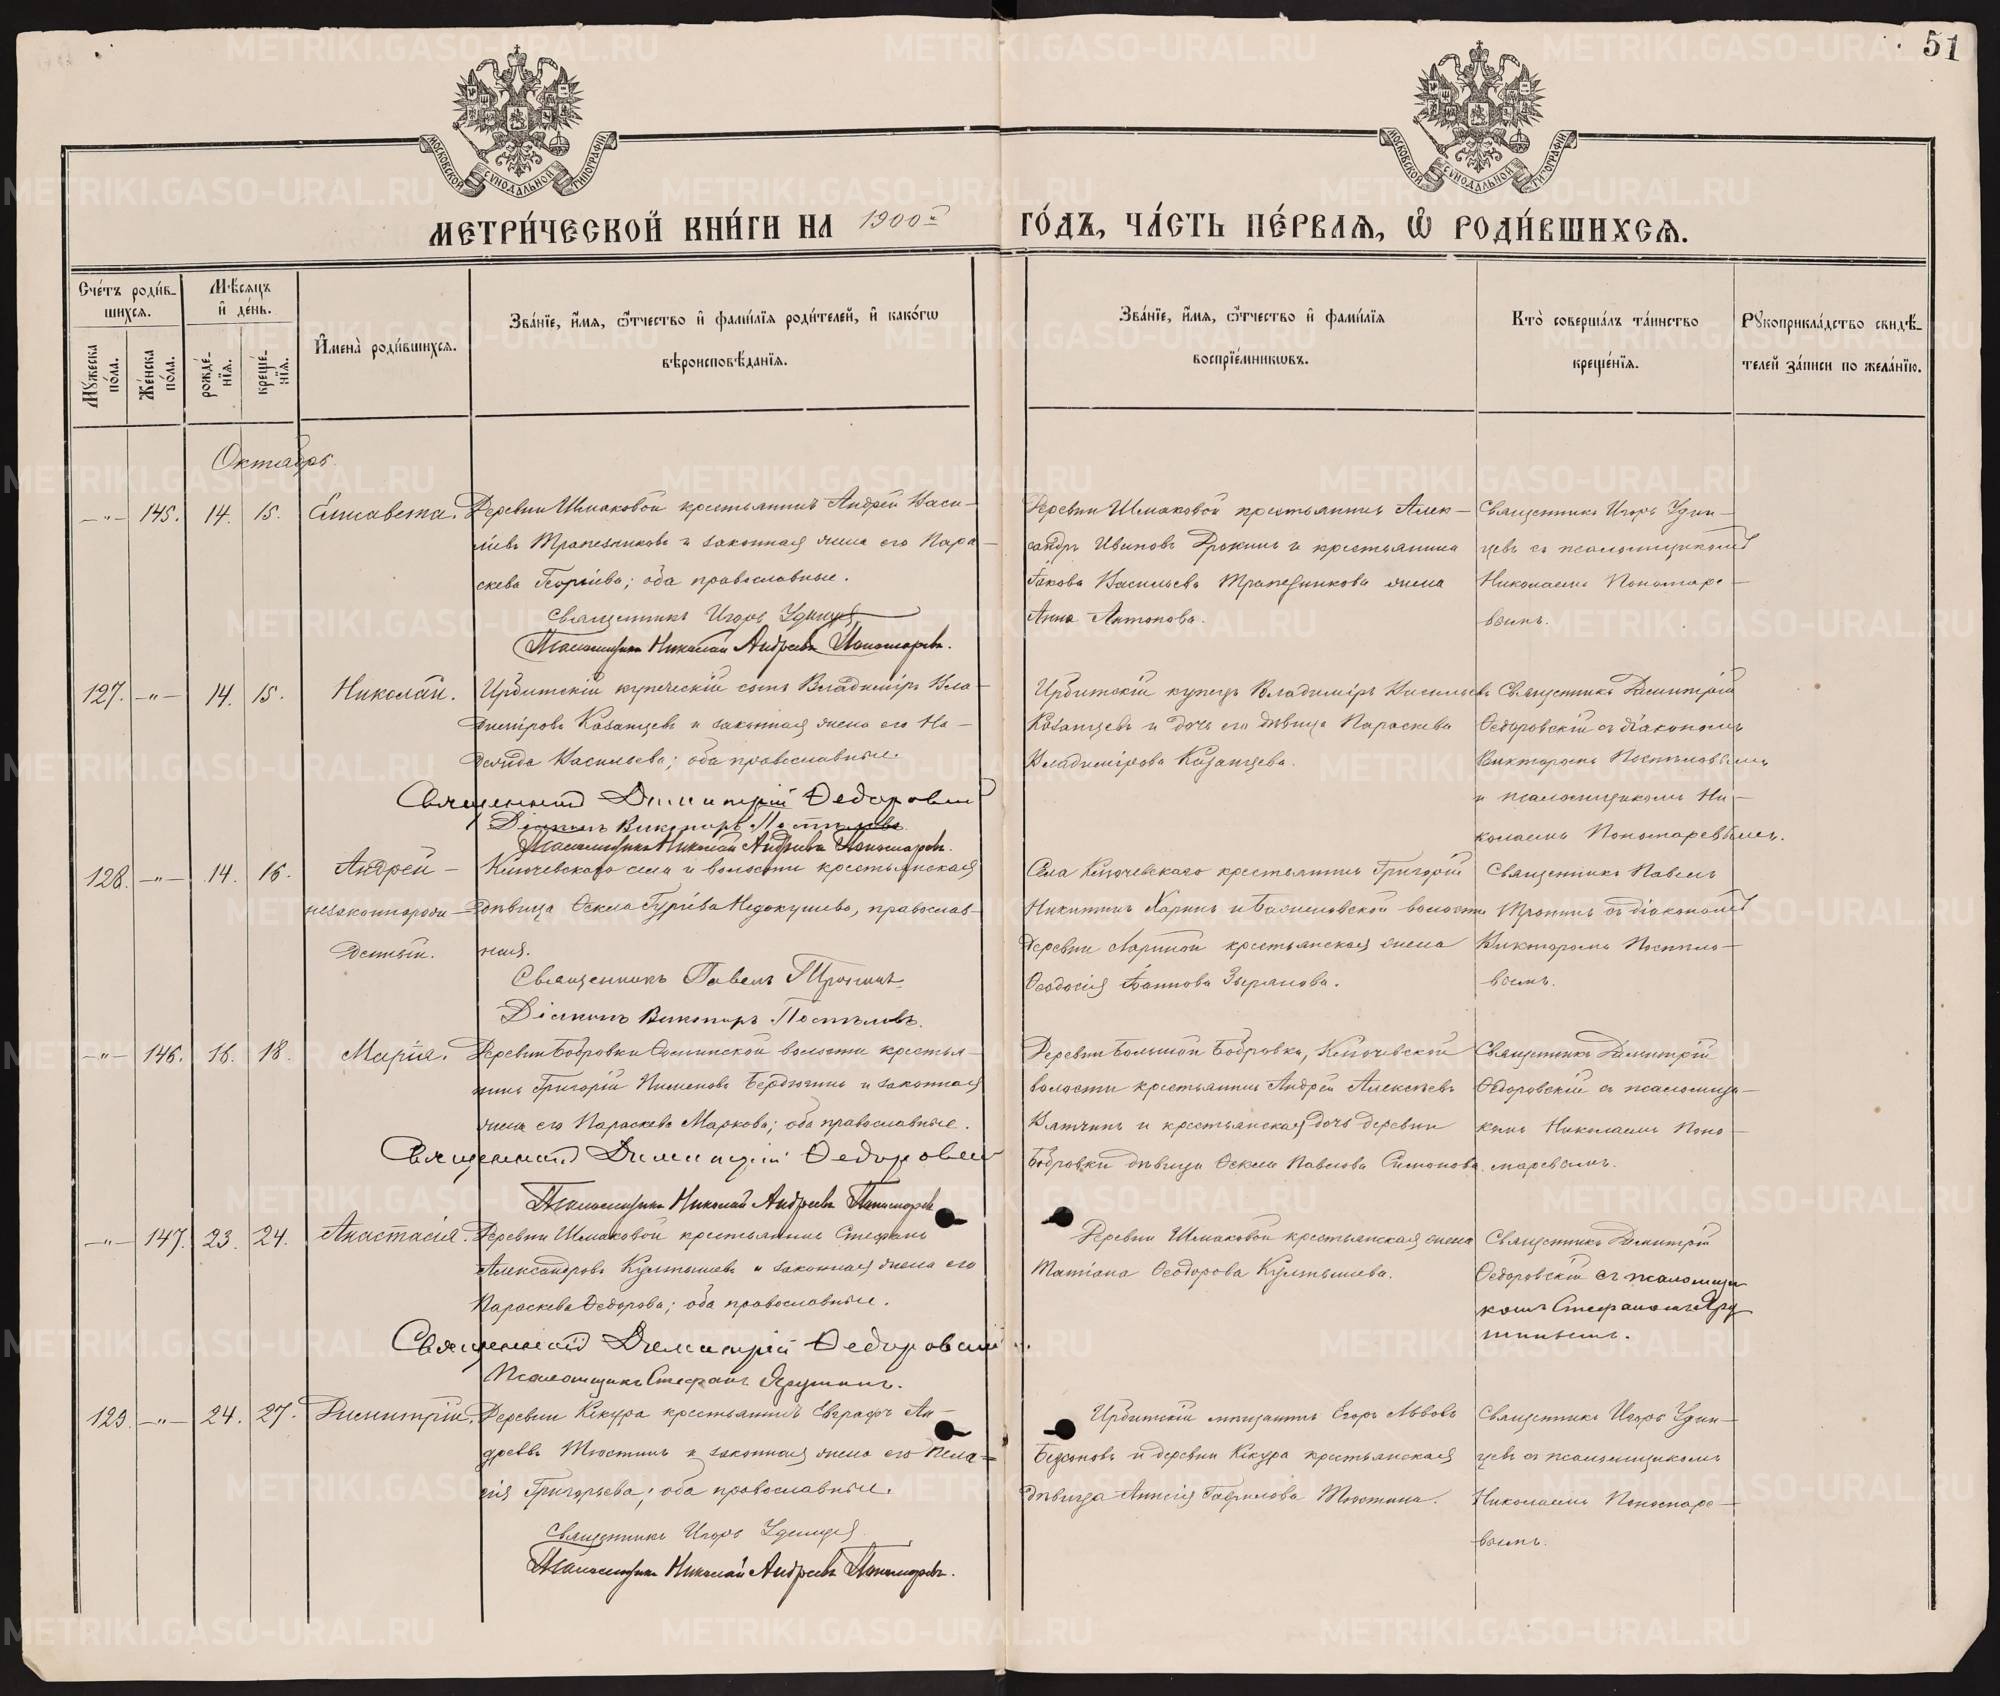 51
МОСКОВСКОЙ СѴНОДАЛЬНОЙ ТИПОГРАФІИ
МОСКОВСКОЙ СѴНОДАЛЬНОЙ ТИПОГРАФІИ
МЕТРИ́ЧЕСКОЙ КНИ́ГИ НА 1900й ГО́ДЪ, ЧА́СТЬ ПЕ́РВАѦ, Ѽ РОДИ́ВШИХСѦ.
Сче́тъ роди́в-
шихсѧ.
Мꙋ́жеска по́ла.
Же́нска по́ла.
Мѣ́сѧцъ
и҆ де́нь.
рожде́-
нїѧ.
креще́-
нїѧ.
И҆мена̀ роди́вшихсѧ.
Зва́нїе, и҆́мѧ, ѻ҆́тчество и҆ фами́лїѧ роди́телей, и҆ како́гѡ
вѣроисповѣ́данїѧ.
Зва́нїе, и҆́мѧ, ѻ҆́тчество и҆ фами́лїѧ
воспрїе́мникѡвъ.
Кто̀ соверша́лъ та́инство
креще́нїѧ.
Рꙋкоприкла́дство свидѣ́-
телей за́писи по жела́нїю.
Октябрь.
—"— 145. 14. 15. Елисавета.
Деревни Шмаковой крестьянинъ Андрей Васи-
ліевъ Трапезниковъ и законная жена его Пара-
скева Георгіева; оба православные.
Священникъ Игорь Удинцев
Псаломщикъ Николай Андреевъ Пономаревъ.
Деревни Шмаковой крестьянинъ Алек-
сандръ Ивановъ Дрокинъ и крестьянина
Іакова Васильева Трапезникова жена
Анна Антонова.
Священникъ Игорь Удин-
цевъ съ псаломщикомъ
Николаемъ Пономаре-
вымъ.
127. —"— 14. 15. Николай.
Ирбитскій купеческій сынъ Владиміръ Вла-
диміровъ Казанцевъ и законная жена его На-
дежда Васильева; оба православные.
Священникъ Димитрій Ѳедоровский
Діаконъ Викторъ Постъловъ
Псаломщикъ Николай Андреевъ Пономаревъ.
Ирбитскій купецъ Владиміръ Васильевъ
Казанцевъ и дочь его дѣвица Параскева
Владимірова Казанцева.
Священникъ Димитрій
Ѳедоровскій съ діакономъ
Викторомъ Поспѣловымъ
и псаломщикомъ Ни-
колаемъ Пономаревымъ.
128. —"— 14. 16. Андрей —
незаконнорож-
денный.
Ключевского села и волости крестьянская
дѣвица Ѳекла Гуріева Недокушева, православ-
ная.
Священникъ Павелъ Тронинъ
Діаконъ Викторъ Поспѣловъ.
Села Ключевскаго крестьянинъ Григорій
Никитинъ Харинъ и волости
деревни Лариной крестьянская жена
Ѳеодосія Іоаннова Зырянова.
Священникъ Павелъ
Тронинъ съ діакономъ
Викторомъ Поспѣло-
вымъ.
—"— 146. 16. 18. Марія.
Деревни Бобровки Осинцской волости крестья-
нинъ Григорій Пименовъ Бердюгинъ и законная
жена его Параскева Маркова; оба православные.
Священникъ Димитрій Ѳедоровский
Псаломщикъ Николай Андреевъ Пономаревъ
Деревни Большой Бобровки, Ключевской
волости крестьянинъ Андрей Алексѣевъ
Вятчинъ и крестьянская дочь деревни
Бобровки дѣвица Ѳекла Павлова Симонова.
Священникъ Димитрій
Ѳедоровскій съ псаломщи-
комъ Николаемъ Поно-
маревымъ.
—"— 147. 23. 24. Анастасія.
Деревни Шмаковой крестьянинъ Стефанъ
Александровъ Култышевъ и законная жена его
Параскева Ѳедорова; оба православные.
Священникъ Димитрій Ѳедоровский.
Псаломщикъ Стефанъ Ярушинъ.
Деревни Шмаковой крестьянская жена
Татіана Ѳеодорова Култышева.
Священникъ Димитрій
Ѳедоровскій съ псаломщи
комъ Стефаномъ Яру
шинымъ.
129. —"— 24. 27. Димитрій.
Деревни Кекура крестьянинъ Евграфъ Ан-
дреевъ Тюстинъ и законная жена его Пела-
гія Григорьева; оба православные.
Священникъ Игорь Удинцев
Псаломщикъ Николай Андреевъ Пономаревъ.
Ирбитскій мѣщанинъ Егоръ Львовъ
и деревни Кекура крестьянская
дѣвица Анисія Гаврилова Тюстина.
Священникъ Игорь Удин-
цевъ съ псаломщикомъ
Николаемъ Пономаре-
вымъ.
METRIKI.GASO-URAL.RU